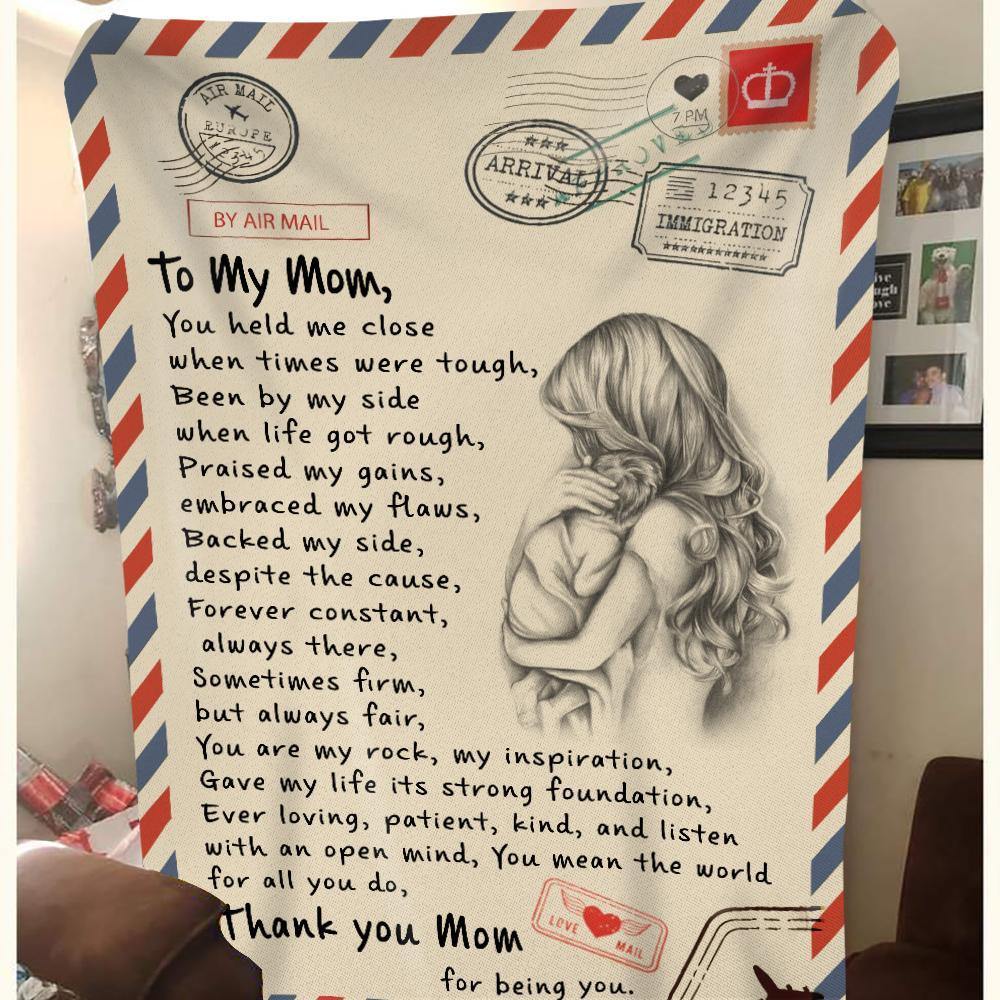 AIR MAIL
EUROPE
12345
7 PM
ARRIVAL
LOVE
12345
IMMIGRATION
BY AIR MAIL
To My Mom,
You held me close
when times were tough,
Been by my side
when life got rough,
Praised my gains,
embraced my flaws,
Backed my side,
despite the cause,
Forever constant,
always there,
Sometimes firm,
but always fair,
You are my rock, my inspiration,
Gave my life its strong foundation,
Ever loving, patient, kind, and listen
with an open mind, You mean the world
for all you do,
Thank you Mom
LOVE MAIL
for being you.